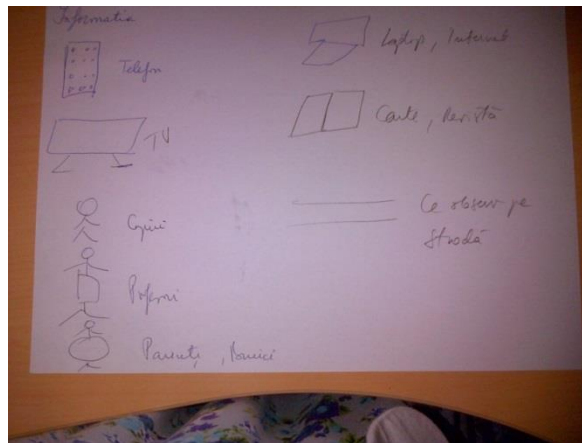 Informatia
Telefon
TV
Copiii
Profesorii
Parinti, Bunici
Laptop, Internet
Carte, Revistă
Ce observ pe
stradă